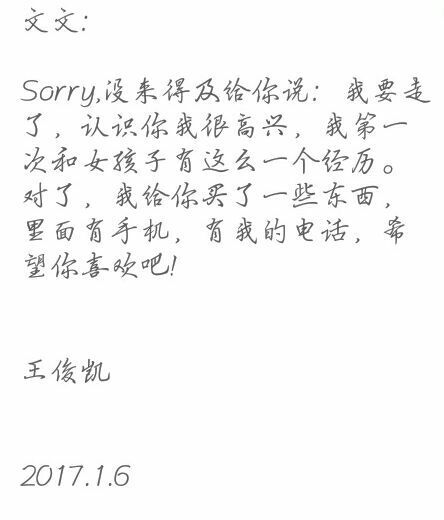 文文:
Sorry,没来得及给你说：我要走
了，认识你我很高兴，我第一
次和女孩子有这么一个经历。
对了，我给你买了一些东西，
里面有手机，有我的电话，希
望你喜欢吧!
王俊凯
2017.1.6